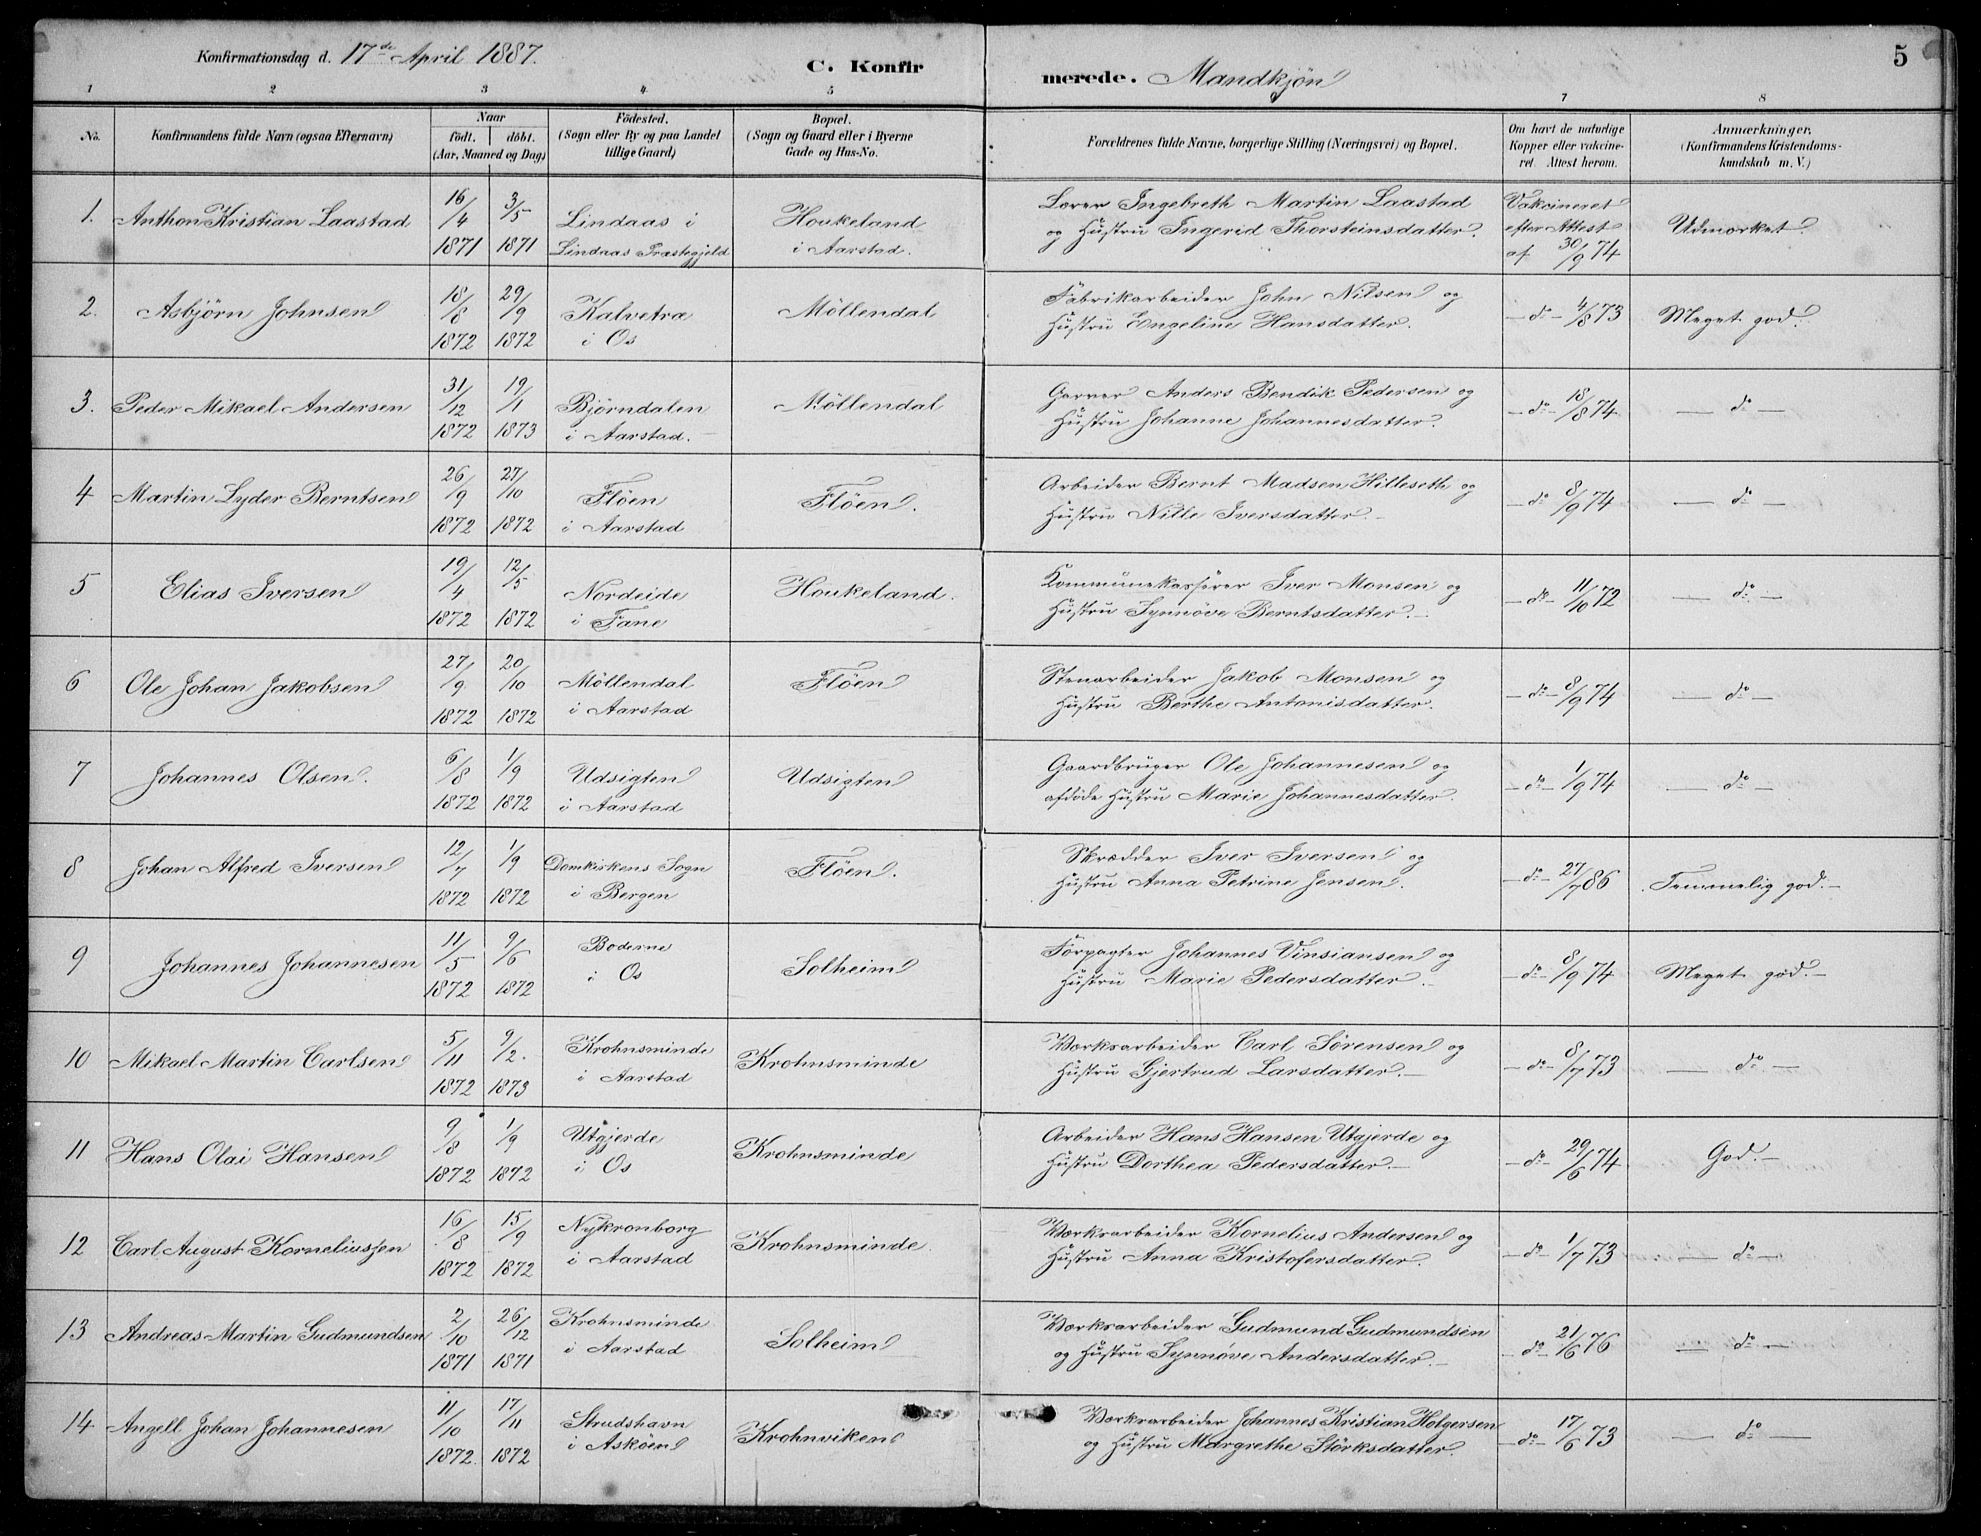 Konfirmationsdag d. 17de April 1887.
C. Konfir
merede. Mandkjön
5
1 2 3 4 5 7 8
No.
Konfirmandens fulde Navn (ogsaa Efternavn)
Naar
födt. döbt.
(Aar, Maaned og Dag)
Födested.
(Sogn eller By og paa Landet
tillige Gaard)
Bopæl.
(Sogn og Gaard eller i Byerne
Gade og Hus-No.
Forældrenes fulde Navne, borgerlige Stilling (Næringsvei) og Bopæl.
Om havt de naturlige
Kopper eller vakcine-
ret. Attest herom.
Anmærkninger,
(Konfirmandens Kristendoms-
kundskab m. V.)
1. Anthon Kristian Laastad 16/4 1871 3/5 1871 Lindaas i Lindaas Præstegjeld Houkeland i Aarstad. Lærer Ingebreth Martin Laastad og Hustru Ingerid Thorsteinsdatter. Vakcineret efter Attest af 30/9 74 Udmærket.
2. Asbjörn Johnsen 18/8 1872 29/9 1872 Kalvetræ i Os Möllendal Fabrikarbeider John Nilsen og Hustru Engeline Hansdatter. -do- 4/8 73 Meget god.
3. Peder Mikael Andersen 31/12 1872 19/1 1873 Björndalen i Aarstad.- Möllendal Garver Anders Bendik Pedersen og Hustru Johanne Johannesdatter. -do- 18/8 74 -do-
4 Martin Lyder Berntsen 26/9 1872 27/10 1872 Flöen i Aarstad Flöen. Arbeider Bernt Madsen Hilleseth og Hustru Nille Iversdatter.- -do- 8/9 74 -do-
5 Elias Iversen 19/4 1872 12/5 1872 Nordeide i Fane Houkeland. Kommunekasserer Iver Monsen og Hustru Synnöve Berntsdatter.- -do- 11/10 72 -do-
6 Ole Johan Jakobsen 27/9 1872 20/10 1872 Möllendal i Aarstad Flöen Stenarbeider Jakob Monsen og Hustru Berthe Antonisdatter. -do- 8/9 74 -do-
7 Johannes Olsen. 6/8 1872 1/9 1872 Udsigten i Aarstad Udsigten Gaardbruger Ole Johannesen og afdöde Hustru Marie Johannesdatter. -do- 1/9 74 -do-
8 Johan Alfred Iversen 12/7 1872 1/9 1872 Domkirkens Sogn i Bergen Flöen. Skrædder Iver Iversen og Hustru Anna Petrine Jensen. -do- 27/7 86 Temmelig god.-
9 Johannes Johannesen 11/5 1872 9/6 1872 Boderne i Os Solheim Forpagter Johannes Vinsiansen og Hustru Marie Pedersdatter.- -do- 8/9 74 Meget god.-
10 Mikael Martin Carlsen 5/11 1872 9/2. 1873 Krohnsminde i Aarstad Krohnsminde Værksarbeider Carl Sörensen og Hustru Gjertrud Larsdatter.- -do- 8/7 73 -do-
11 Hans Olai Hansen 9/8 1872 1/9 1872 Utgjerde i Os Krohnsminde Arbeider Hans Hansen Utgjerde og Hustru Dorthea Pedersdatter.- -do- 29/6 74 God.-
12 Carl August Korneliussen 16/8 1872 15/9 1872 Nykronborg i Aarstad Krohnsminde. Værksarbeider Kornelius Andersen og Hustru Anna Kristofersdatter. -do- 1/7 73 -do-
13 Andreas Martin Gudmundsen 2/10 1871 26/12 1871 Krohnsminde i Aarstad Solheim Værksarbeider Gudmund Gudmundsen og Hustru Synnöve Andersdatter.- -do- 21/6 76 -do-
14 Angell Johan Johannesen 11/10 1872. 17/11 1872 Strudshavn i Asköen Krohnviken Værksarbeider Johannes Kristian Holgersen og Hustru Margrethe Störksdatter. -do- 17/6 73 -do-